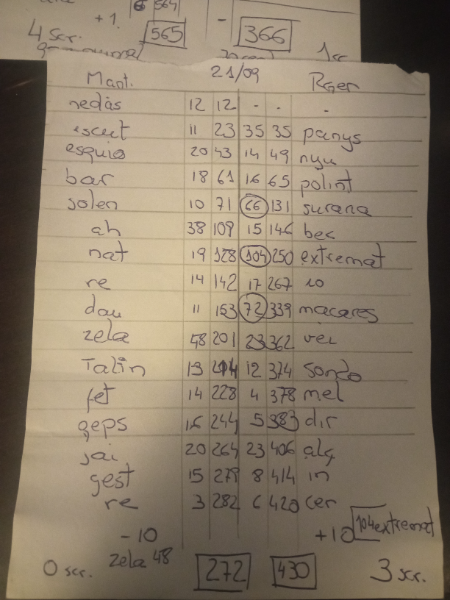 564
+1. 565 - 366
4 scr. 1 sc
Mart. 21/09 Roger
redàs 12 12 - - .
escut 11 23 35 35 panys
esquio 20 43 14 49 nyu
bar 18 61 16 65 polint
solen 10 71 66 131 surana
ah 38 109 15 146 bec
nat 19 128 104 250 extremat
re 14 142 17 267 io
dau 11 153 72 339 macares
zela 48 201 23 362 vei
Talin 13 214 12 374 sondo
fet 14 228 4 378 mel
geps 16 244 5 383 dir
jai 20 264 23 406 alg
gest 15 279 8 414 in
re 3 282 6 420 cer
-10 +10 104 extremat
0 scr. zela 48 272 430 3 scr.